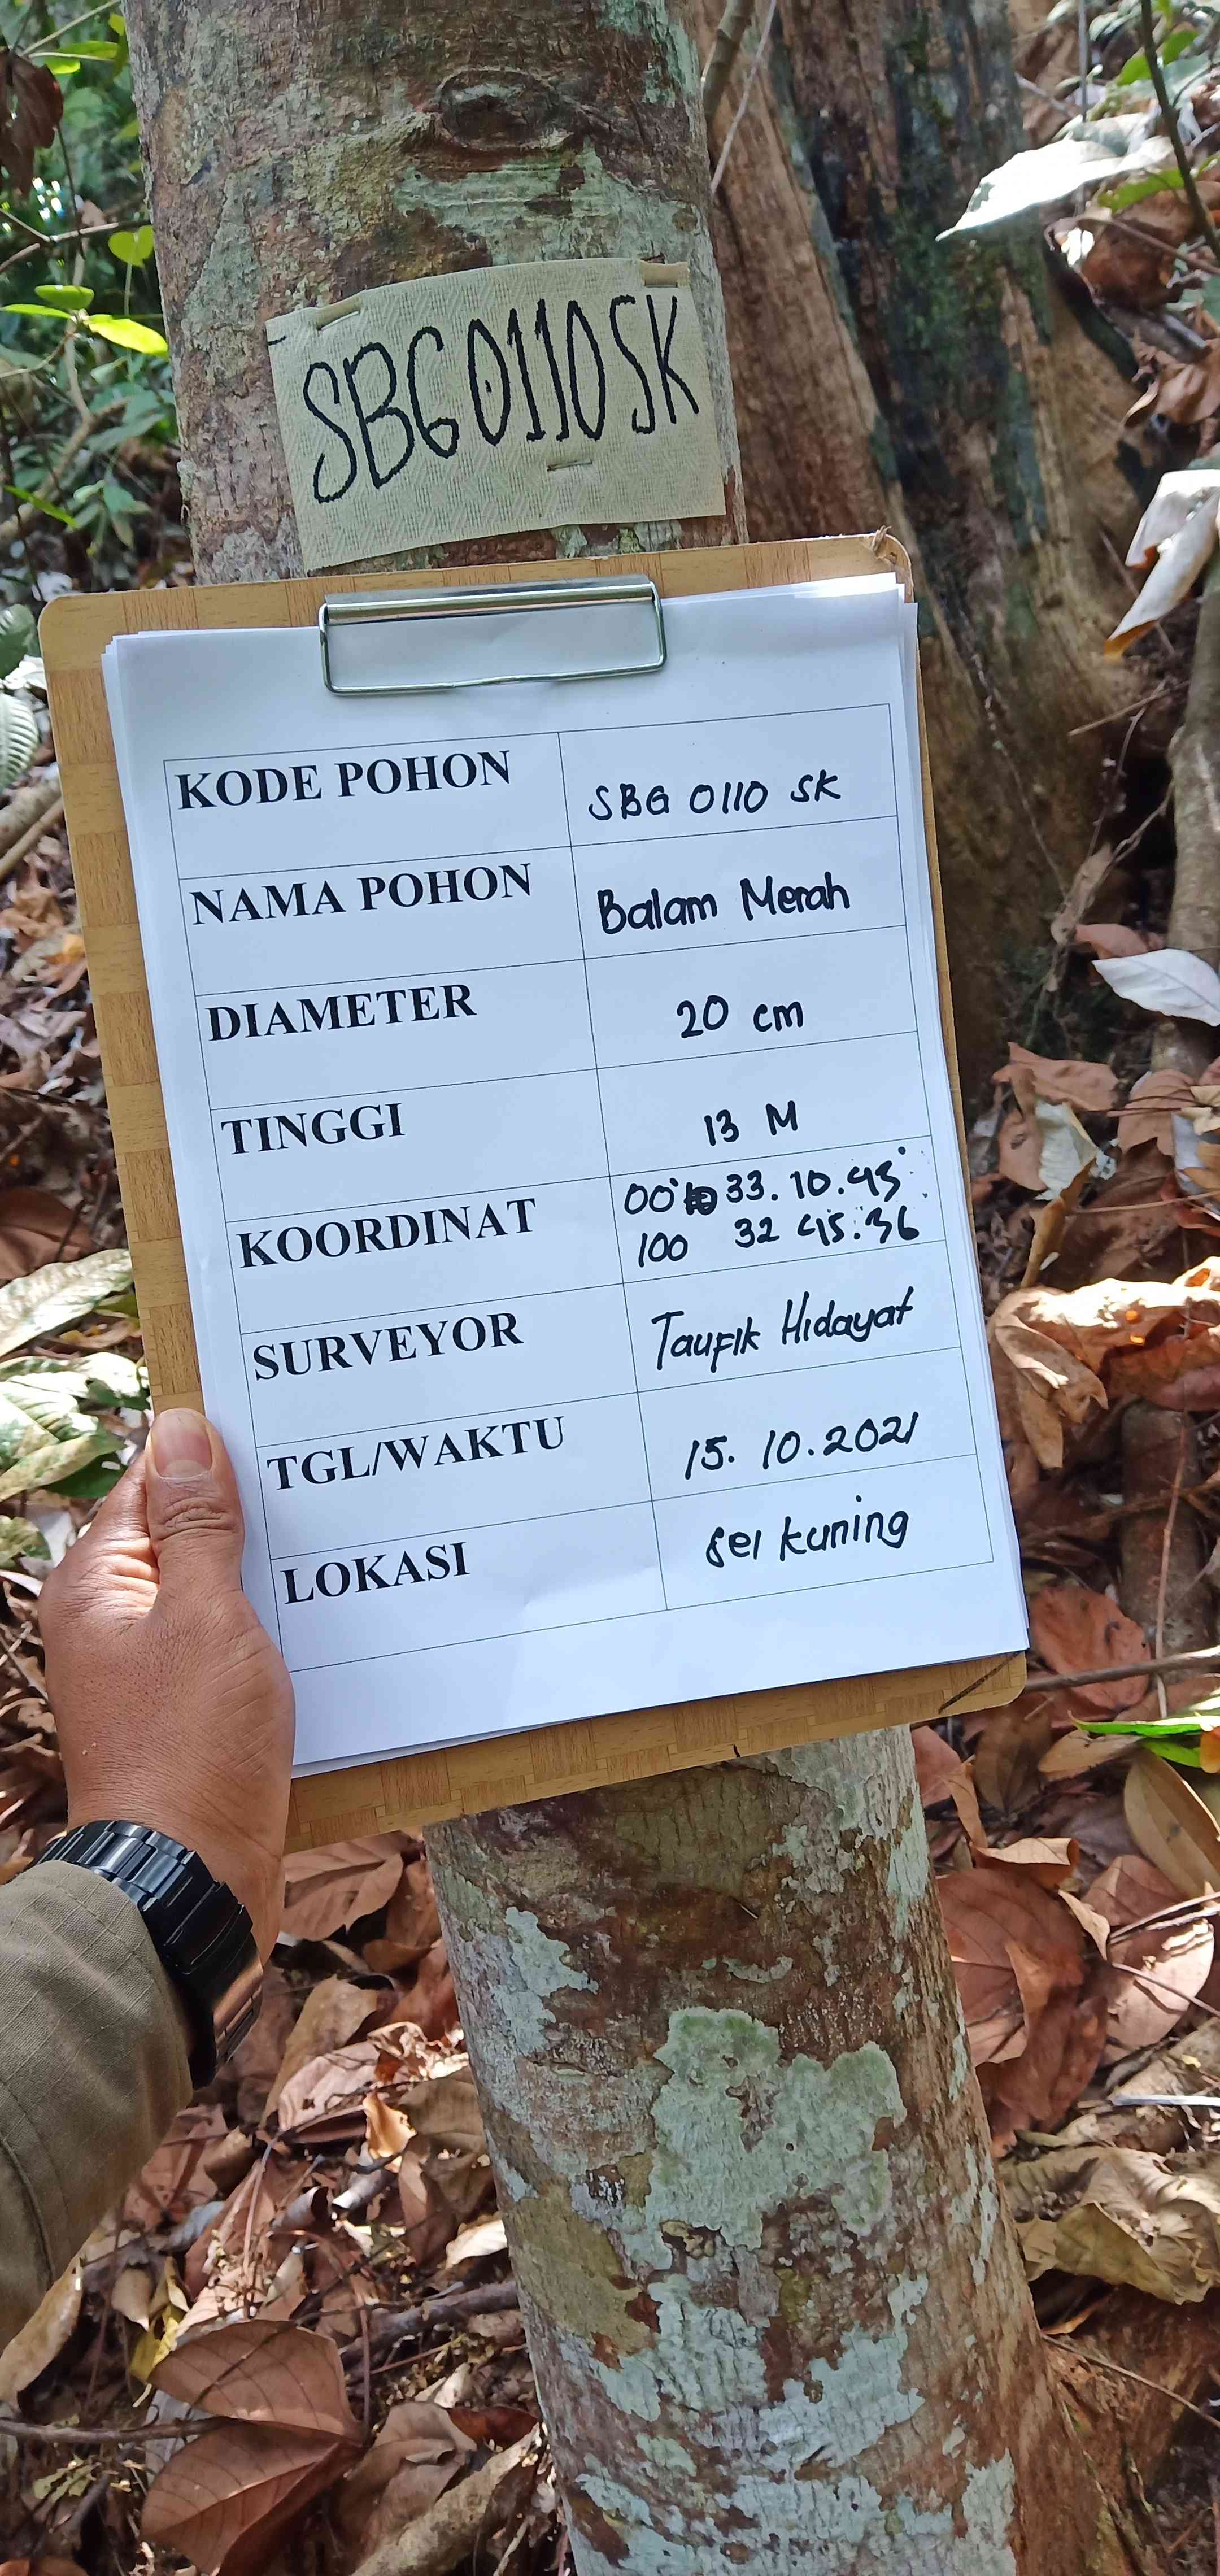 SBG0110SK
KODE POHON SBG 0110 SK
NAMA POHON Balam Merah
DIAMETER 20 cm
TINGGI 13 M
KOORDINAT 00° 33. 10.43
100 32 45.36
SURVEYOR Taufik Hidayat
TGL/WAKTU 15. 10.2021
LOKASI sei kuning